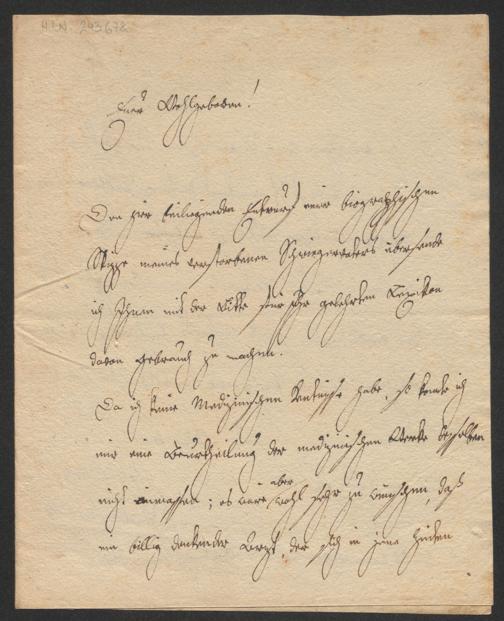 H.I.N. 243678
Euer Wohlgeboren!
Den hier beiliegenden Entwurf einer biographischen
Skizze meines verstorbenen Schwiegervaters übersende
ich Ihnen mit der Bitte für Ihr gelehrten Lexikon
davon Gebrauch zu machen.
Da ich keine Medizinischen Kentnisse habe, so konte ich
mir eine Beurtheilung der medizinischen Werke desselben
nicht anmassen; es wäre aber wohl sehr zu wünschen, daß
ein billig denkender Arzt, der sich in jene Zeiten